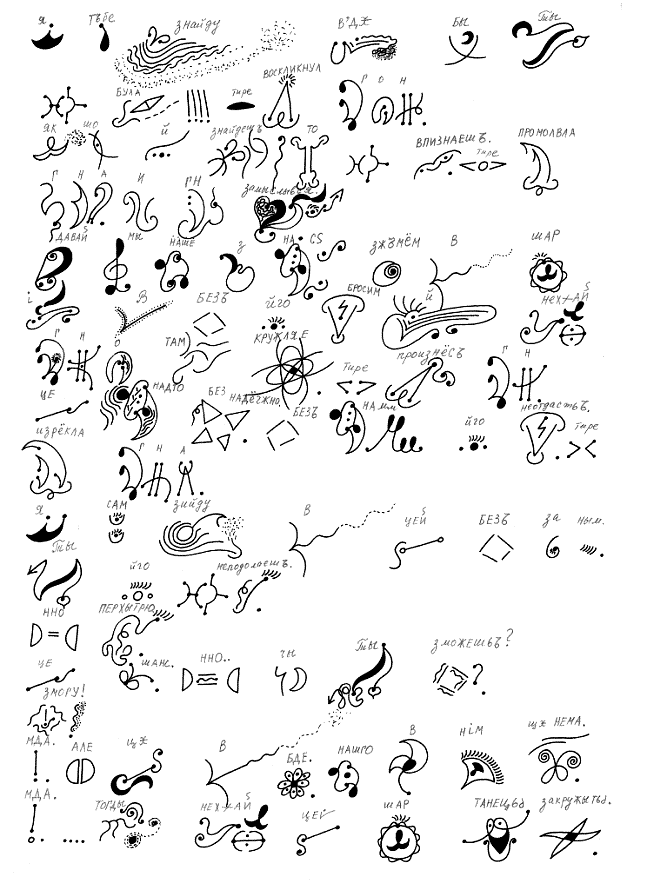 Я ТѢБЕ ЗНАЙДУ В'ДЖ БЫ ТЫ
БУХА ТИРЕ ВОСКЛИКНУЛ Г О Н
ЯК ШО Й ЗНАЙДЕШЪ ТО ВПИЗНАЕШЪ. ТИРЕ ПРОМОЛВЛА
Г Н А И ГН
ДАВАЙ МЫ НАШЕ З НА CS ЗЖЪМЁМ В ШАР
І В БЕЗЪ ЙГО БРОСИМ Й НЕХ-АЙ
Г Н О ТАМ КРУЖЛЯЕ ТИРЕ ПРОИЗНЁСЪ Г Н
ЦЕ НАДТО БЕЗ НАДЁЖНО, БЕЗЪ НАММ ЙГО НЕОТДАСТЬ. ТИРЕ
ИЗРЁКЛА Г Н А
Я САМ ЗИЙДУ В ЦЕЙ БЕЗЪ ЗА НЫМ.
ТЫ ЙГО НЕПОДОЛАЕШЪ.
ННО ПЕРХЫТРЮ
ЦЕ ШАНС. ННО.. ЧЫ ТЫ ЗМОЖЕШЪ?
ЗМОРУ!
МДА. АЛЕ ЦЖ В БДЕ. НАШГО В НІМ ЦЖ НЕМА.
МДА. ТОГДЫ НЕХ-АЙ ЦЕЙ ШАР ТАНЕЦЬЬ ЗАКРУЖЫТЬ.